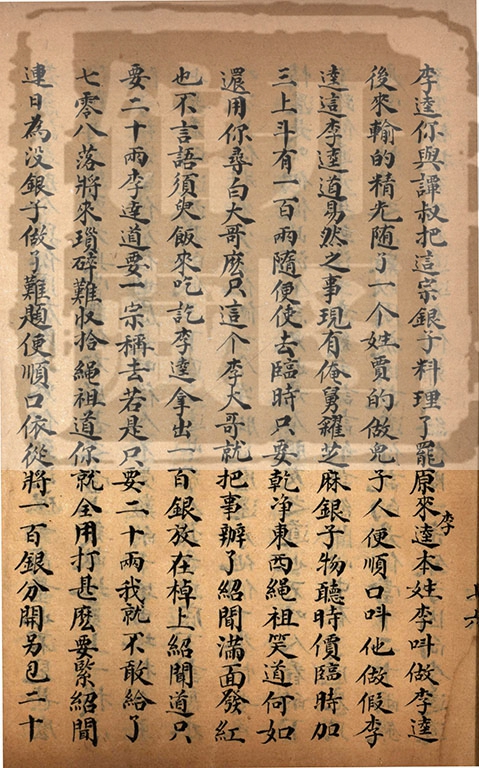 李逵你與譚叔把這宗銀子料理了罷原來李逵本姓李叫做李逵
後來輸的精光随了一个姓賈的做兒子人便順口叫他做假李
逵這李逵道易然之事現有俺舅糴芝麻銀子物聽時價臨時加
三上斗有一百兩隨便使去臨時只要乾净東西繩祖笑道何如
還用你尋白大哥麽只這个李大哥就把事辦了紹聞滿面發紅
也不言語須臾飯來吃訖李逵拿出一百銀放在棹上紹聞道只
要二十兩李逵道要一宗稱去若是只要二十兩我就不敢給了
七零八落將來瑣碎難収拾繩祖道你就全用打甚麽要緊紹聞
連日為没銀子做了難題便順口依從將一百銀分開另包二十